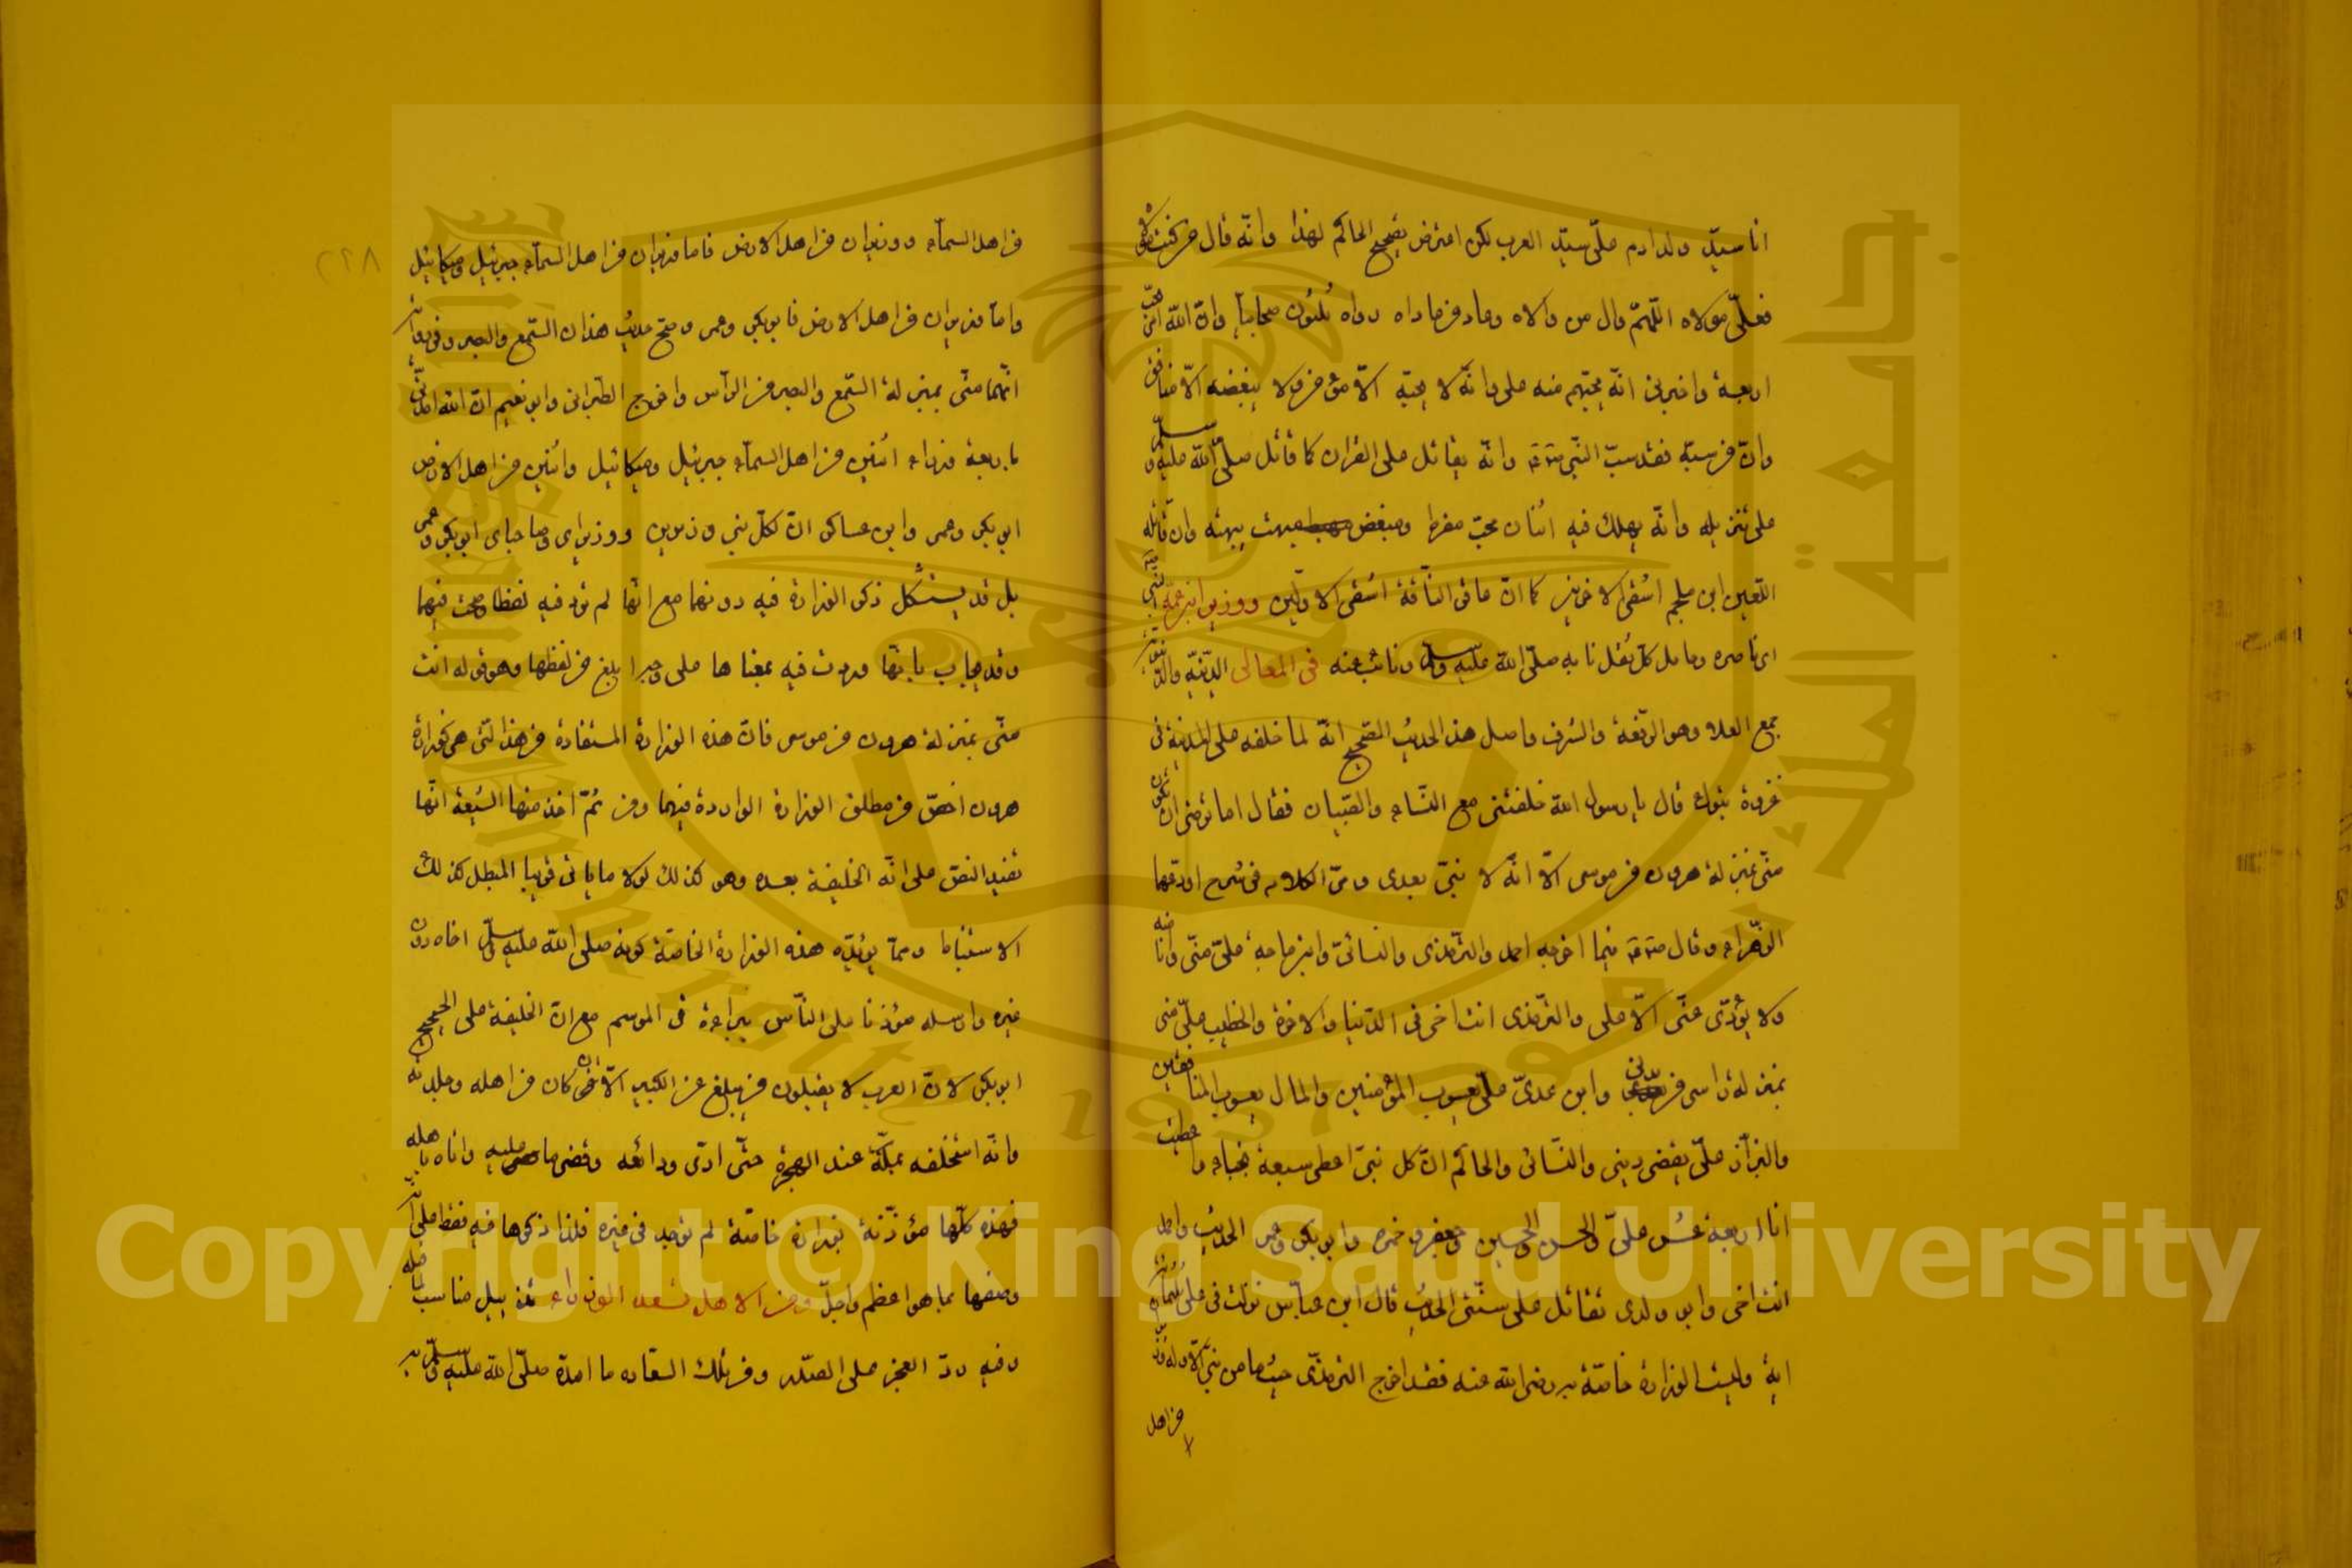 انا سيد ولد ادم وعلى سيد العرب لكن اعترض تصحيح الحاكم لهذا وانه قال من كنت مولاه
فعلى مولاه اللهم وال من والاه وعاد من عاداه رواه ثلثون صحابيا وان الله امر بحب
اربعة واخبرنى انه يحبهم منهم على وانه لا يحبه الا مؤمن ولا يبغضه الا منافق
وان من سبه فقد سب النبى وانه يقاتل على القران كما قاتل صلى الله عليه وسلم
على تنزيله وانه يهلك فيه اثنان محب مفرط ومبغض مبهت يبهته وان قاتله
اللعين ابن ملجم اشقى الاخرين كما ان عاقر الناقة اشقى الاولين ووزير ابن عمه النبى
اى ناصره وحامل كل ثقل نابه صلى الله عليه وسلم ونائب عنه فى المعالى الدينية والدنيوية
جمع العلا وهو الرفعة والشرف واصل هذا الحديث الصحيح انه لما خلفه على المدينة فى
غزوة تبوك قال يا رسول الله خلفتنى مع النساء والصبيان فقال اما ترضى ان تكون
منى بمنزلة هرون من موسى الا انه لا نبى بعدى ومر الكلام فى شرح اودعها
الزهراء وقال فيما اخرجه احمد والترمذى والنسائى وابن ماجة على منى وانا منه
ولا يؤدى عنى الا على والترمذى انت اخى فى الدنيا والاخرة والخطيب على منى
بمنزلة راسى من بدنى وابن عدى على يعسوب المؤمنين والمال يعسوب المنافقين
والبزاز على يقضى دينى والنسائى والحاكم ان كل نبى اعطى سبعة نجباء واعطيت
انا اربعة عشر على والحسن والحسين وجعفر وحمزه وابو بكر وعمر الحديث واحمد
انت اخى وابو ولدى تقاتل على سنتى الحديث قال ابن عباس نزلت فى على ثلثمائة
اية وليست الوزارة خاصة به رضى الله عنه فقد اخرج الترمذى حديث ما من نبى الا وله وزيران
من اهل
من اهل السماء ووزيران من اهل الارض فاما وزيراى من اهل السماء جبرئيل وميكائيل
واما وزيراى من اهل الارض فابو بكر وعمر وصح حديث هذان السمع والبصر وفى رواية
انهما منى بمنزلة السمع والبصر من الراس واخرج الطبرانى وابو نعيم ان الله ايدنى
باربعة وزراء اثنين من اهل السماء جبرئيل وميكائيل واثنين من اهل الارض
ابو بكر وعمر وابن عساكر ان لكل نبى وزيرين ووزيراى وصاحباى ابو بكر وعمر
بل قد يستشكل ذكر الوزارة فيه دونهما مع انها لم ترد فيه لفظا وصحت فيهما
وقد يجاب بانها وردت فيه بمعناها على وجه ابلغ من لفظها وهو قوله انت
منى بمنزلة هرون من موسى فان هذه الوزارة المستفادة من هذا التى هى كوزارة
هرون اخص من مطلق الوزارة الواردة فيهما ومن ثم اخذ منها الشيعة انها
تفيد النص على انه الخليفة بعده وهو كذلك لولا ما ياتى قريبا المبطل لذلك
الاستنباط ومما يؤيد هذه الوزارة الخاصة كونه صلى الله عليه وسلم اخاه دون
غيره وارسله مؤذنا على الناس ببراءة فى الموسم مع ان الخليفة على الحجيج
ابو بكر لان العرب لا يقبلون من يبلغ عن الكبير الا من كان من اهله وجلدته
وانه استخلفه بمكة عند الهجرة حتى ادى ودائعه وقضى ما عليه واتاه باهله
فهذه كلها مؤذنة بوزارة خاصة لم توجد فى غيره فلذا ذكرها فيه فقط على انه
وصفها بما هو اعظم واجل ومن الاهل تسعد الوزراء تذييل مناسب لما قبله
وفيه رد العجز على الصدر ومن تلك السعادة ما امده صلى الله عليه وسلم به